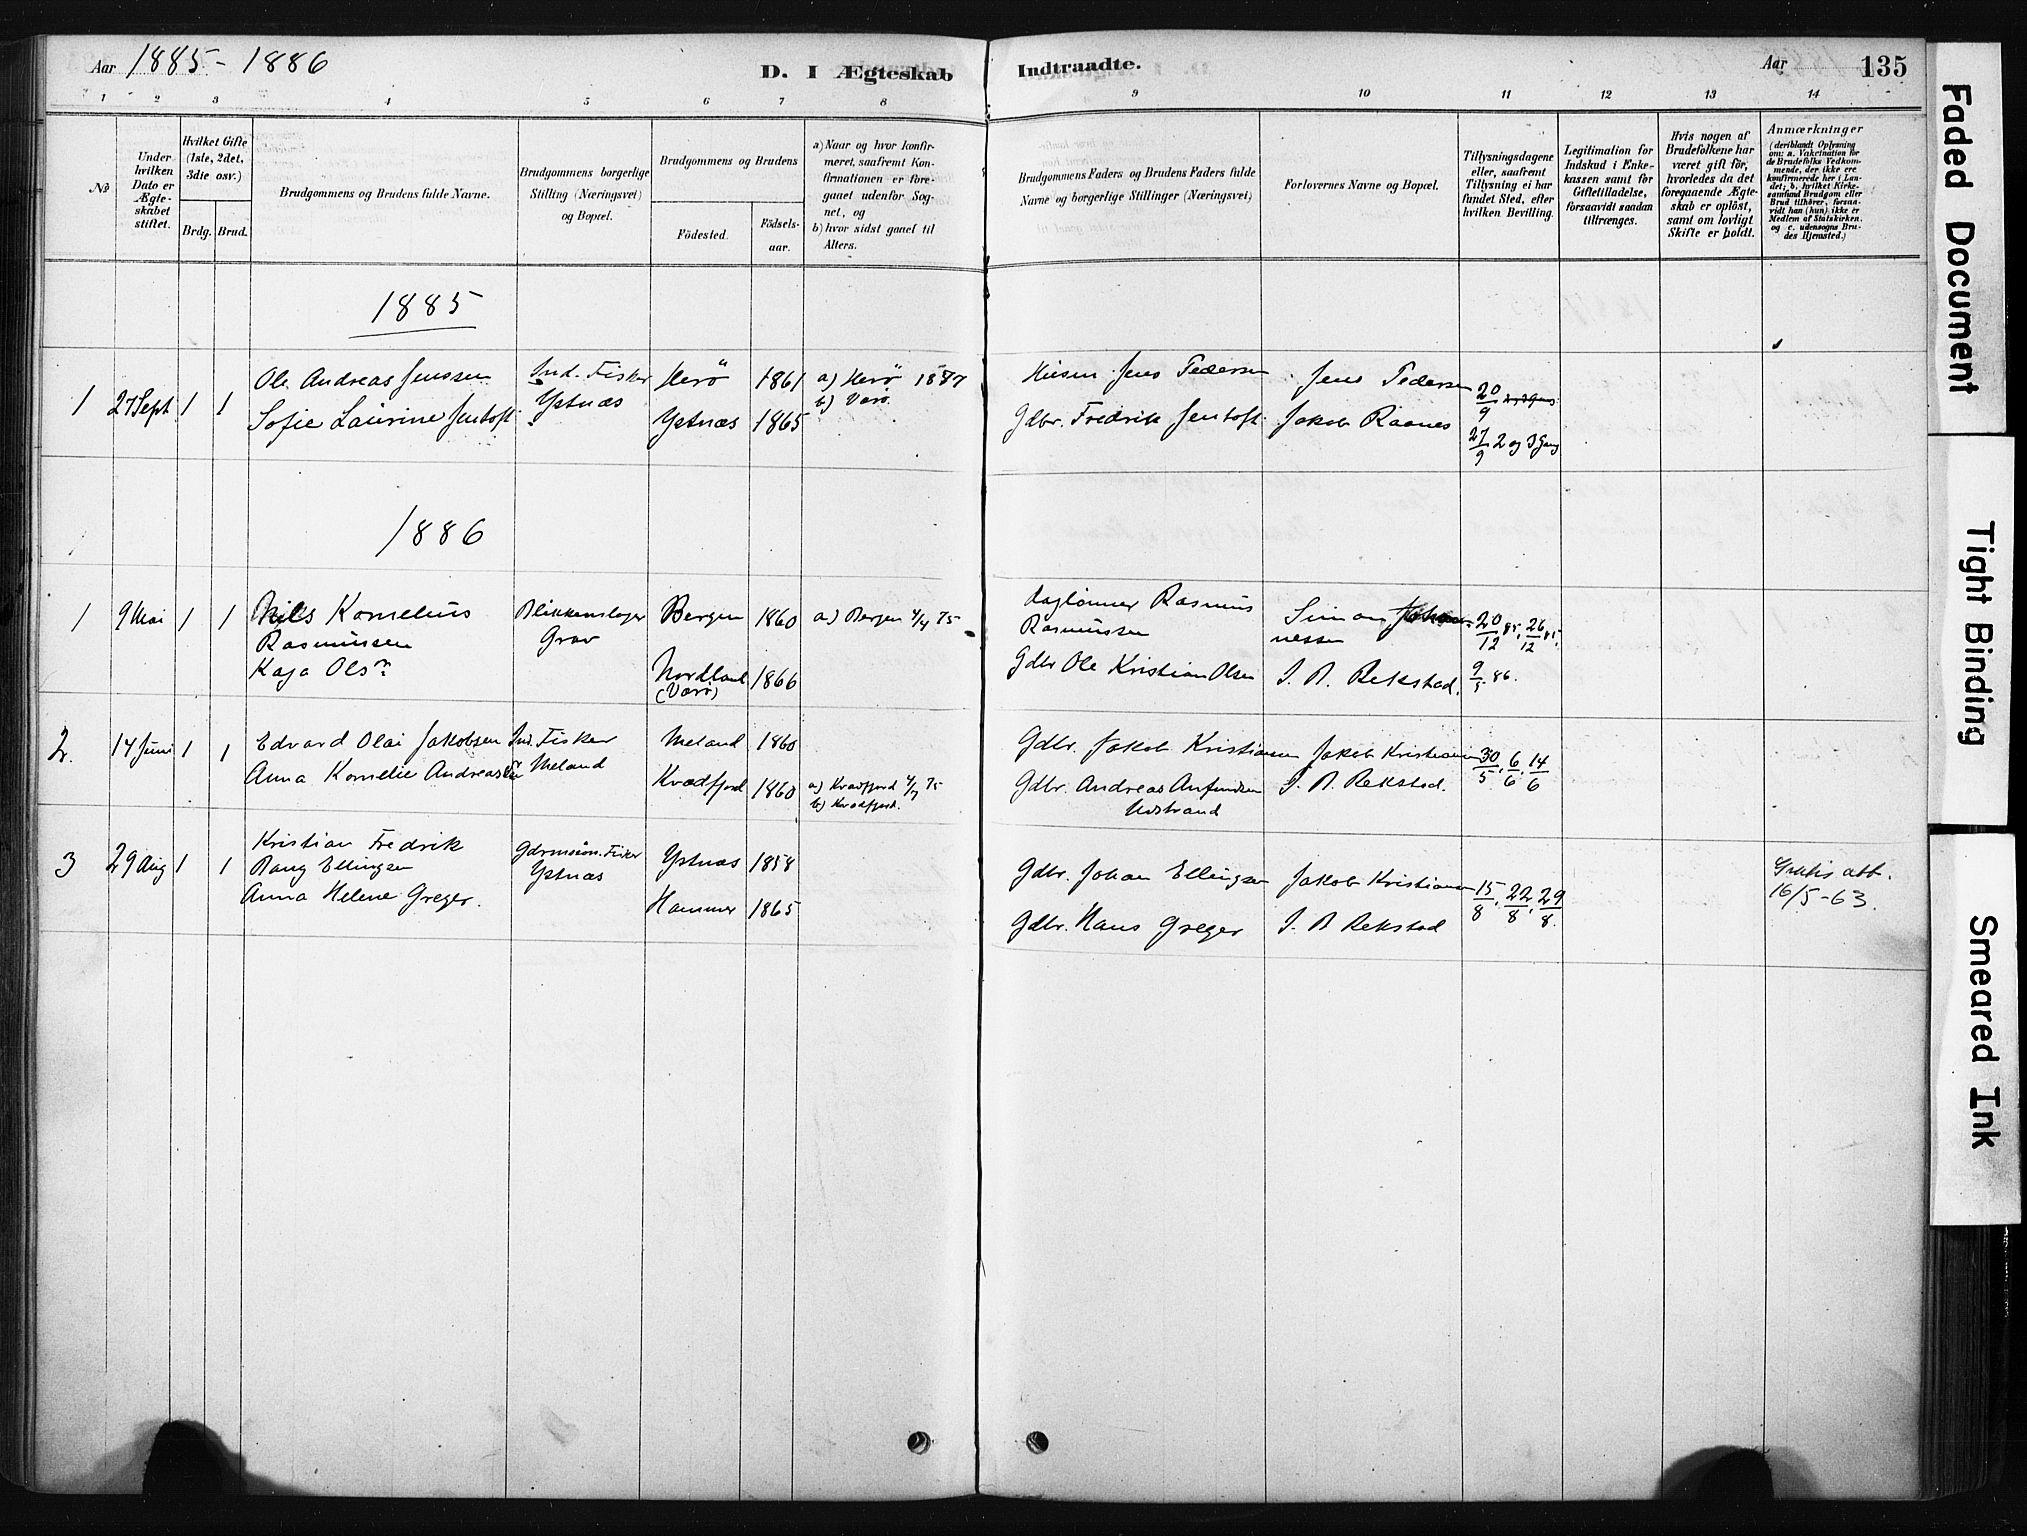 Aar 1885-1886
D. I Ægteskab Indtraadte.
Aar
135
1 2 3 4 5 6 7 8 9 10 11 12 13 14
No
Under hvilken Dato er Ægteskabet stiftet.
Hvilket Gifte (1ste, 2det, 3die osv.)
Brdg. Brud.
Brudgommens og Brudens fulde Navne.
Brudgommens borgerlige Stilling (Næringsvei) og Bopæl.
Brudgommens og Brudens
Födested.
Födsels-aar.
a) Naar og hvor konfirmeret, saafremt Konfirmationen er foregaaet udenfor Sognet, og
b) hvor sidst gaaet til Alters.
Brudgommens Faders og Brudens Faders fulde Navne og borgerlige Stillinger (Næringsvei)
Forlovernes Navne og Bopæl.
Tillysningsdagene eller, saafremt Tillysning ei har fundet Sted, efter hvilken Bevilling.
Legitimation for Indskud i Enkekassen samt for Giftetilladelse, forsaavidt saadan tiltrænges.
Hvis nogen af Brudefolkene har været gift før, hvorledes da det foregaaende Ægteskab er oplöst, samt om lovligt Skifte er holdt.
Anmærkninger (deriblandt Oplysning om: a. Vakcination for de Brudefolks Vedkommende, der ikke ere konfirmerede her i Landet; b. hvilket Kirkesamfund Brudgom eller Brud tilhører, forsaavidt han (hun) ikke er Medlem af Statskirken. og c. udensogns Brudes Hjemsted.)
1885
1 27 Sept 1 1 Ole Andreas Jenssen Ind. Fisker Herö 1861 a) Herö 1877 Jens Pedersen Jens Pedersen 20/9
Sofie Laurine Jentoft Ystnæs Ystnæs 1865 b) Værö Gdbr. Fredrik Jentoft Jakob Raanes 27/9 2 og 3 Gang
1886
1 9 Mai 1 1 Nils Kornelius Blikkenslager Bergen 1860 a) Bergen 4/4 75 Daglönner Rasmus Simon Johan- 20/12 85, 26/12 85,
Rasmussen Grav Rasmussen nessen
Kaja Olsn Nordland 1866 Gdbr Ole Kristian Olsen J. A. Rekstad. 9/5 86.
(Værö)
2. 14 Juni 1 1 Edvard Olai Jakobsen Ind. Fisker Meland 1860 Gdbr. Jakob Kristiansen Jakob Kristiansen 30/5, 6/6, 14/6
Anna Kornelie Andreasdr Meland Kvædfjord 1860 a) Kvædfjord 4/7 75 Gdbr. Andreas Anfindsen J. A. Rekstad.
b) Kvædfjord.
3 29 Aug 1 1 Kristian Fredrik Fisker Ystnæs 1858 Gdbr. Johan Ellingsen Jakob Kristiansen 15/8, 22/8, 29/8.
Bang Ellingsen Ystnæs
Anna Helene Greger. Hammer 1865 Gdbr. Hans Greger J. A Rekstad
Gratis att.
16/5-63.
Faded Document
Tight Binding
Smeared Ink